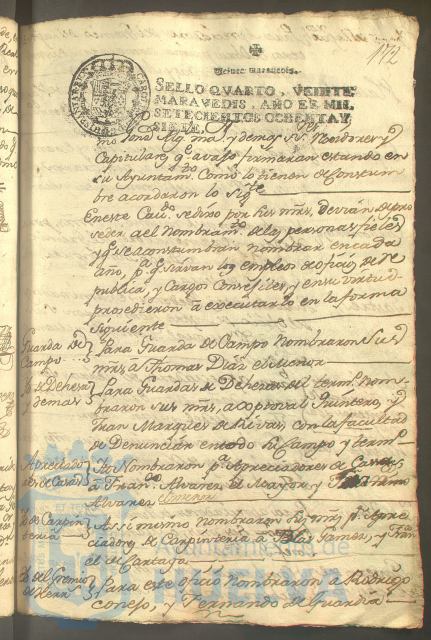 172
Veinte maravedis.
SELLO QVARTO, VEINTE
MARAVEDIS, AÑO DE MIL
SETECIENTOS OCHENTA Y
SIETE.
y demas Regidores y
Capitulares q.e avajo firmaran estando en
su Ayuntam.to Como lo tienen de Costum
bre acordaron lo sig.te
En este Cav.do se dijo por sus mrs, devian de pro
seder a el Nombram.to de las personas fieles
y q.e se acostumbran nombrar en cada
año, p.a q.e sirvan los empleos de ofiсio de Re
publica, y Cargos Consejiles, y en su virtud
prosedieron a executarlo en la forma
siguiente
Guarda de Campo
Para Guarda de Campo Nombraron Sus
mrs a Thomas Diaz el Menor
Yd. de Dehesa y demas
Para Guardas de Dehesas del term.o Nom
braron sus mrs, a Cptoval Quintero, y
Fran Marques de Rivas con la facultad
de Denunciar en todo su Campo y term.o
Apreciadores de Casas
Yt. Nombraron p.r Apreciadores de Casas
a Fran.co Alvarez el Mayor y
Alvarez el menor
Yd. de Carpinteria
Assi mesmo nombraron sus mrs p.r Apre
ciadores de Carpinteria a Blas Gomez, y
de Cartaya
Yd. del Gremio de Herr.s
Para este oficio nombraron a Rodrigo
Conejo, y Fernando de Guardia
Ayuntamiento de
HUELVA